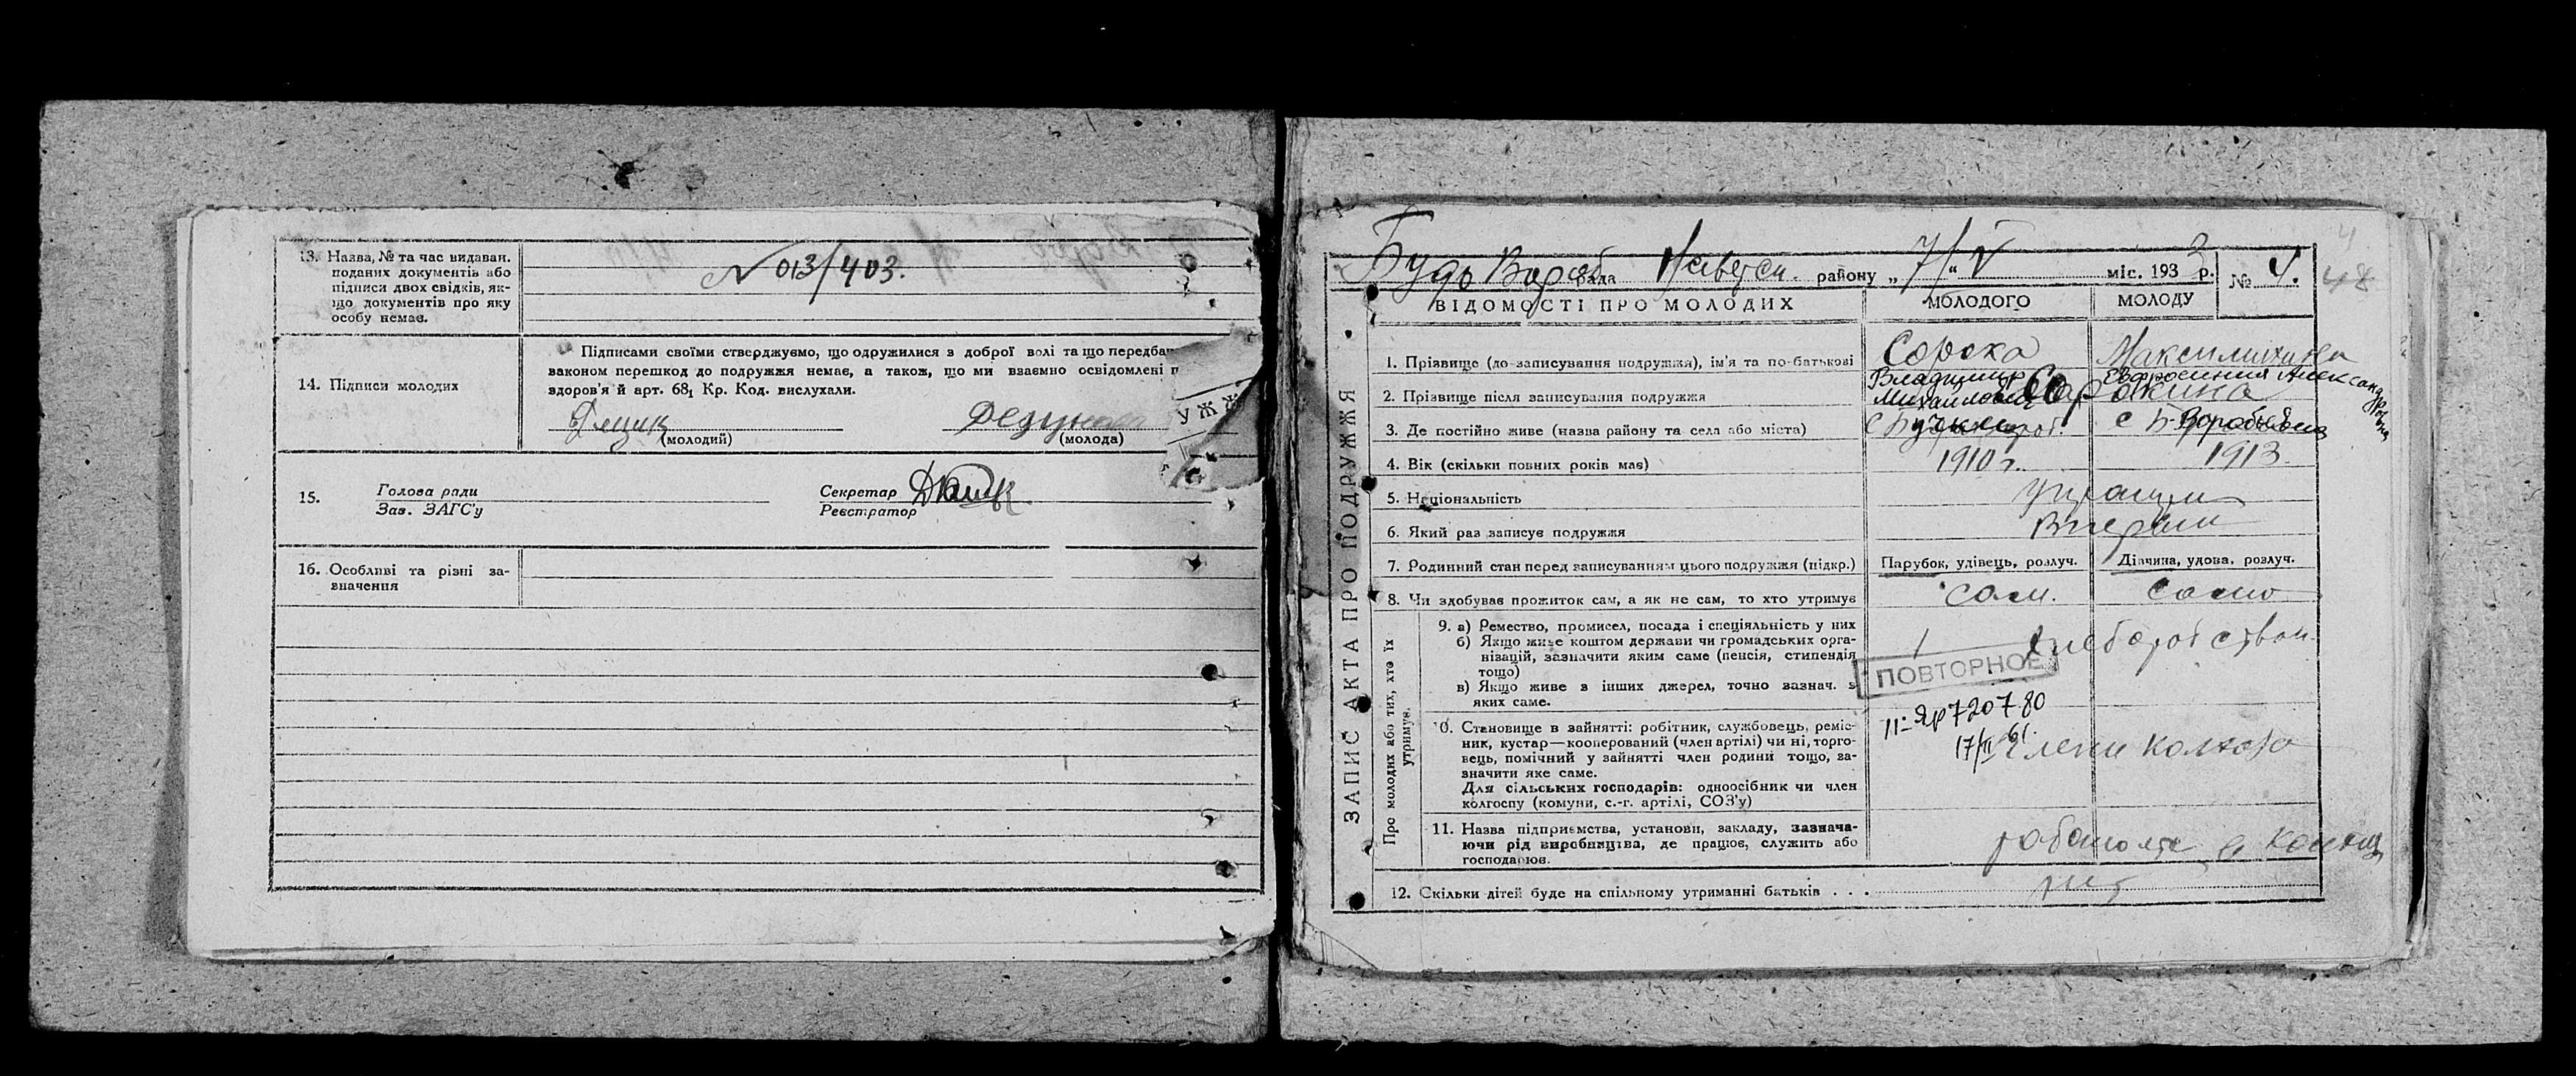 13. Назва, № та час видаван.
поданих документів або
підписи двох свідків, як-
що документів про яку
особу немає.
N 013/403.
14. Підписи молодих
Підписами своїми стверджуємо, що одружилися з доброї волі та що передба
законом перешкод до подружжя немає, а також, що ми взаємно освідомлені п
здоров'я й арт. 68₁ Кр. Код. вислухали.
(молодий)
(молода)
УЖЖ
15.
Голова ради
Зав. ЗАГС'у
Секретар
Реєстратор
16. Особливі та різні за-
значення
4
48
рада района „ 7/" V міс. 1933 р.
№ 4.
ЗАПИС АКТА ПРО ПОДРУЖЖЯ
ВІДОМОСТІ ПРО МОЛОДИХ
МОЛОДОГО
МОЛОДУ
1. Прізвище (до записування подружжя), ім'я та по-батькові
Сорока
Владимир
Михайлович
Евфросиния Александровна
2. Прізвище після записування подружжя
Сорокина
3. Де постійно живе (назва району та села або міста)
4. Вік (скільки повних років має)
1910 г.
1913
5. Національність
6. Який раз записує подружжя
7. Родинний стан перед записуванням цього подружжя (підкр.)
Парубок, удівець, розлуч.
Дівчина, удова, розлуч.
8. Чи здобуває прожиток сам, а як не сам, то хто утримує
сам.
само
Про молодих або тих, хто їх утримує.
9. а) Ремество, промисел, посада і спеціяльність у них
б) Якщо живе коштом держави чи громадських орга-
нізацій, зазначити яким саме (пенсія, стипендія
тощо)
в) Якщо живе з інших джерел, точно зазнач. з
яких саме.
ПОВТОРНОЕ
II-Яр 720780
17/III 61.
10. Становище в зайнятті: робітник, службовець, реміс-
ник, кустар—кооперований (член артілі) чи ні, торго-
вець, помічний у зайнятті член родини тощо, за-
значити яке саме.
Для сільських господарів: одноосібник чи член
колгоспу (комуни, с.-г. артілі, СОЗ'у)
члени колхоза
11. Назва підприємства, установи, закладу, зазнача-
ючи рід виробництва, де працює, служить або
господарює.
12. Скільки дітей буде на спільному утриманні батьків . . .
нет